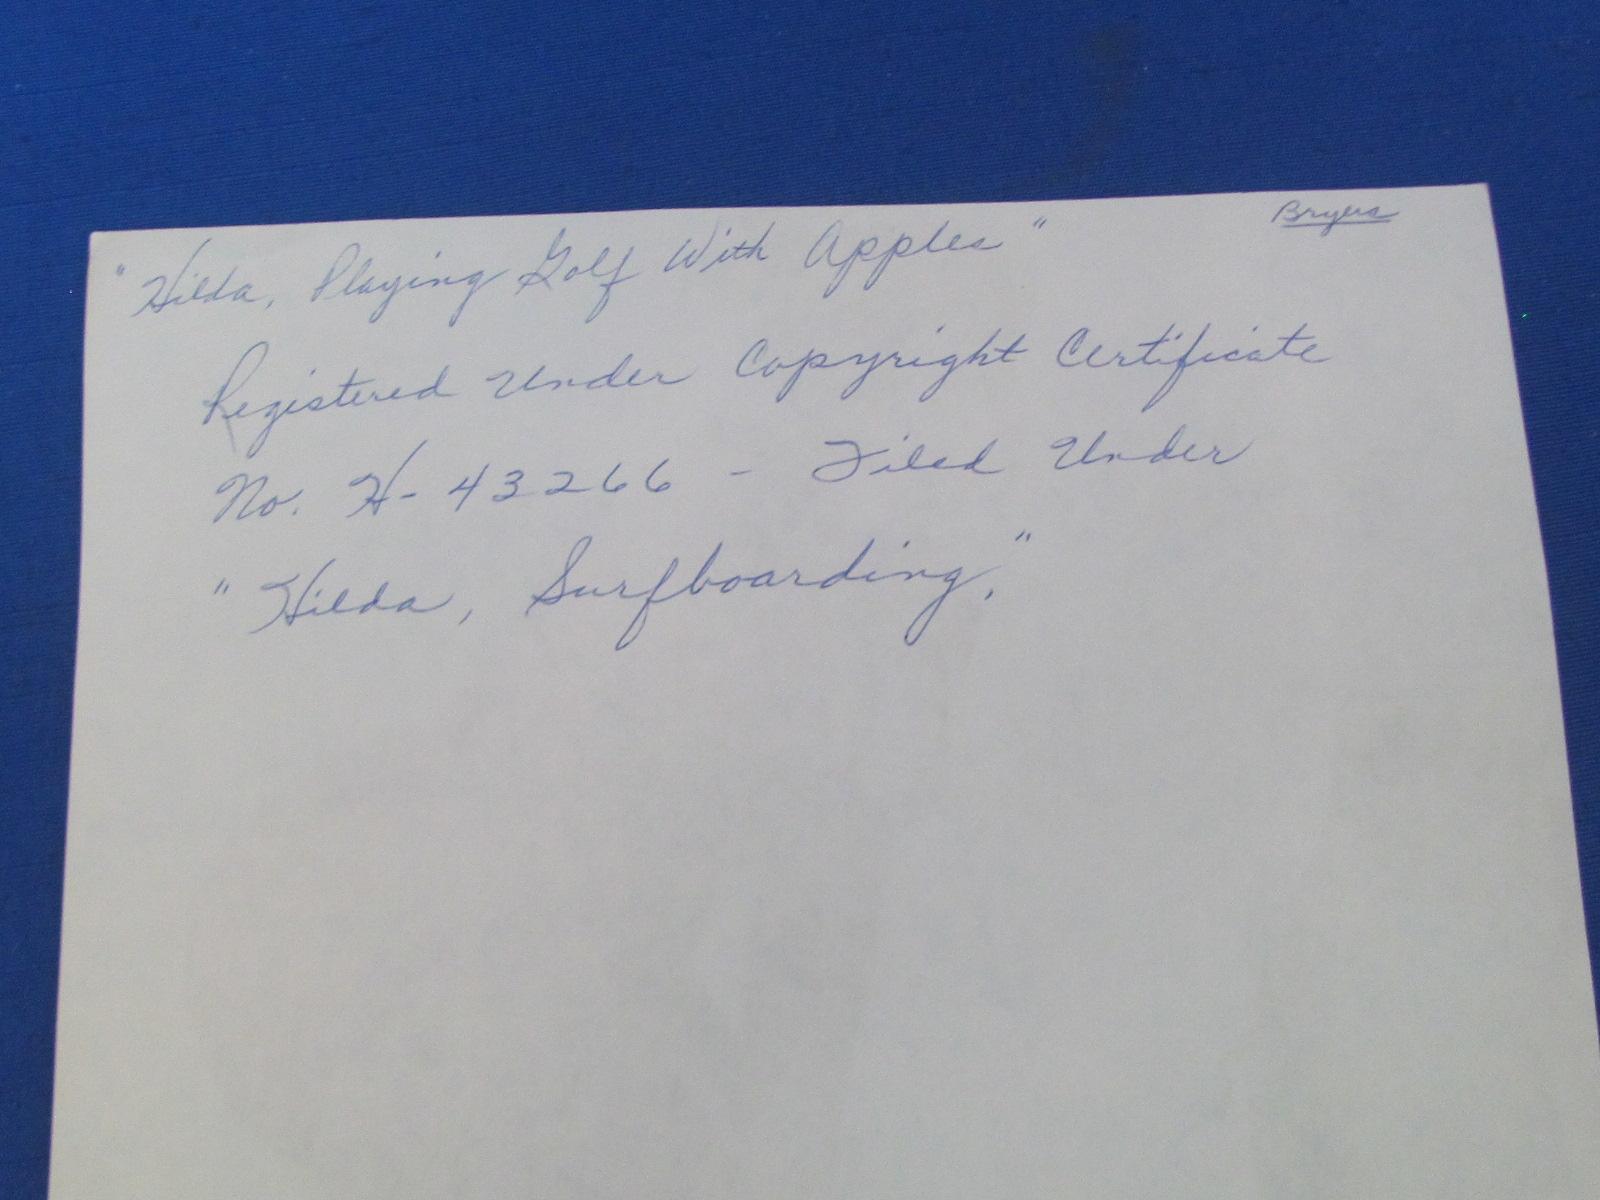 Bryers
"Hilda, Playing Golf With Apples"
Registered Under Copyright Certificate
No. H-43266 - Filed Under
"Hilda, Surfboarding."